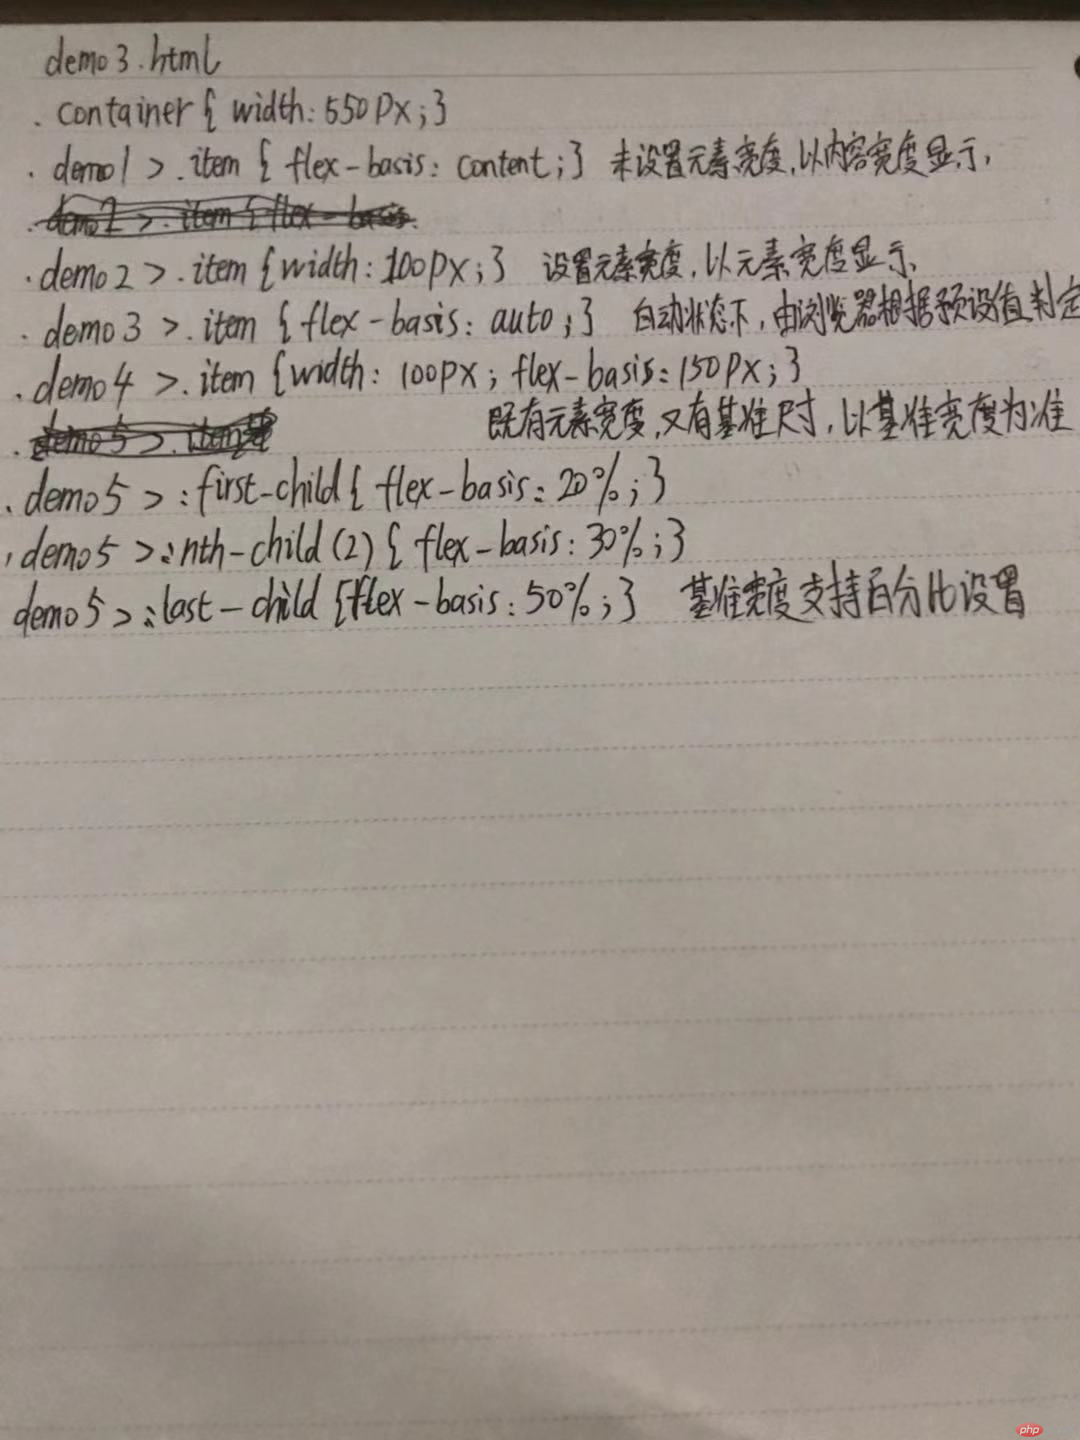 demo3.html
.container{ width:550px;}
.demo1 >.item { flex-basis: content;} 未设置元素宽度,以内容宽度显示,
.demo2 >.item{flex-basis
.demo2 >.item {width:100px;} 设置元素宽度,以元素宽度显示,
.demo3 >.item { flex-basis: auto;} 自动状态下,由浏览器根据预设值判定
.demo4 >.item {width: 100px; flex-basis:150px;}
既有元素宽度,又有基准尺寸,以基准宽度为准
.demo5 >.item
.demo5 >:first-child{ flex-basis:20%;}
.demo5 >:nth-child(2){ flex-basis:30%;}
demo5 >:last-child {flex-basis:50%;} 基准宽度支持百分比设置
php